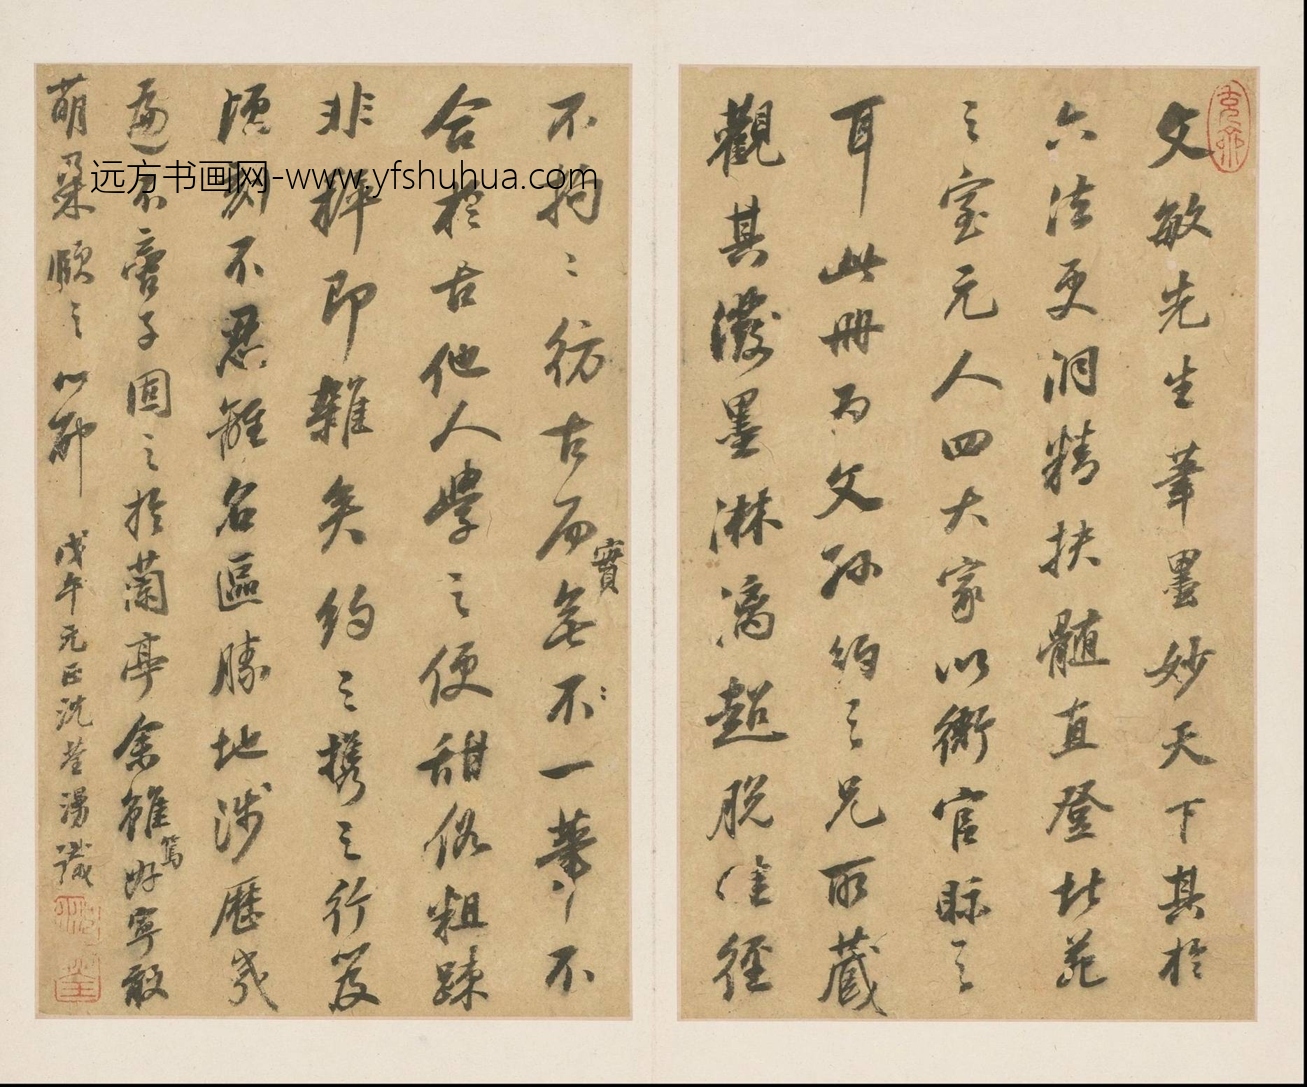 文敏先生筆墨妙天下其於
六法更洞精扶髓直登北苑
之室元人四大家以衙官眎之
耳此冊為文孫約之兄所藏
觀其潑墨淋漓超脫畦徑
不拘〻彷古而實無一筆不
合於古他人學之便甜俗粗疎
非稗即雜矣約之携之行笈
頃刻不忍離名區勝地涉歷幾
遍不啻子固之於蘭亭余雖篤好寧敢
萌朶頤之耶 戊午元正沈荃漫識
沈荃
远方书画网-www.yfshuhua.com